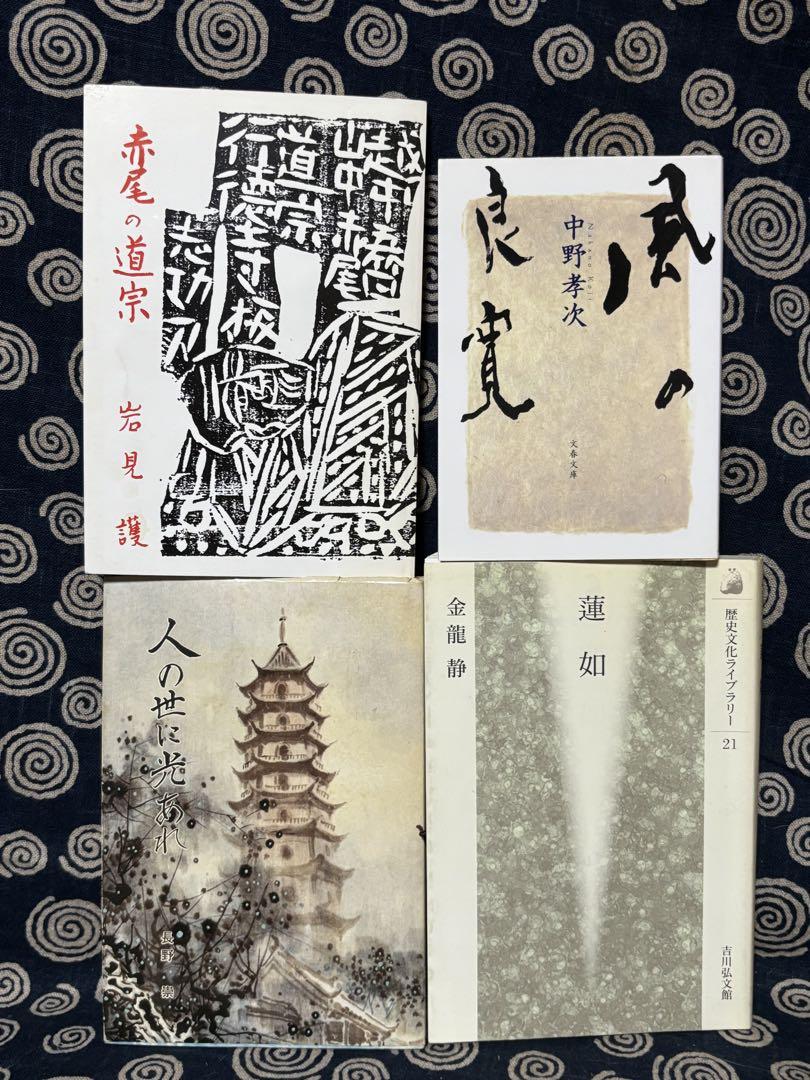 赤尾の道宗
岩見 護
越中
山中赤尾
道宗
行徳寺板
志功刀
風の
良寛
中野孝次
Nakano Koji
文春文庫
人の世に光あれ
長野 崇
蓮如
金龍静
歴史文化ライブラリー
21
吉川弘文館